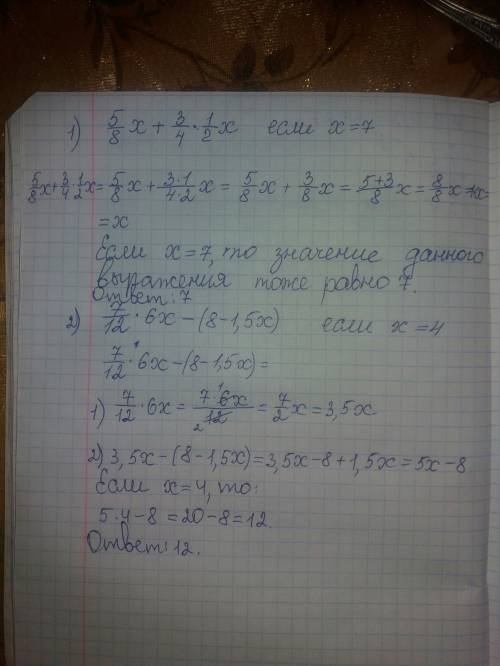 1) 5/8 x + 3/4 · 1/2 x если x = 7
5/8 x + 3/4 · 1/2 x = 5/8 x + 3·1/4·2 x = 5/8 x + 3/8 x = 5+3/8 x = 8/8 x = 1x
= x
Если x = 7, то значение данного
выражения тоже равно 7.
Ответ: 7
2) 7/12 · 6x − (8 − 1,5x) если x = 4
7/12 · 6x − (8 − 1,5x) =
1) 7/12 · 6x = 7·6x/12 = 7/2 x = 3,5x
2) 3,5x − (8 − 1,5x) = 3,5x − 8 + 1,5x = 5x − 8
Если x = 4, то:
5 · 4 − 8 = 20 − 8 = 12.
Ответ: 12.